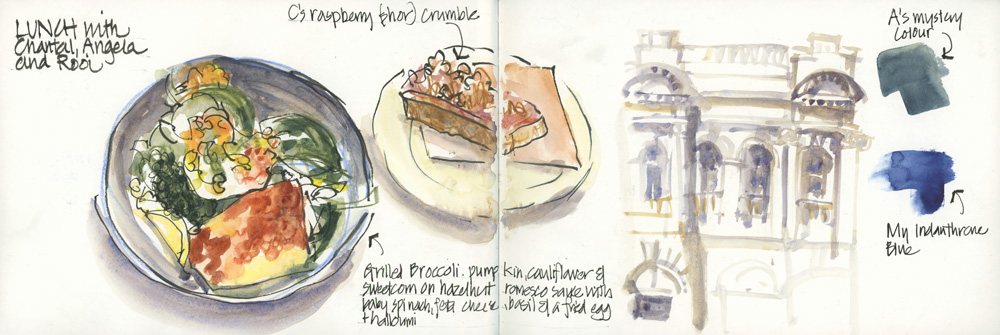 LUNCH with
Chantal, Angela
and Rooi
C's raspberry (hor) crumble
Grilled Broccoli. pumpkin, cauliflower &
sweetcorn on hazelnut romesco sauce with
baby spinach, feta cheese, basil & a fried egg
+ halloumi
A's mystery
colour
My Indanthrone
Blue